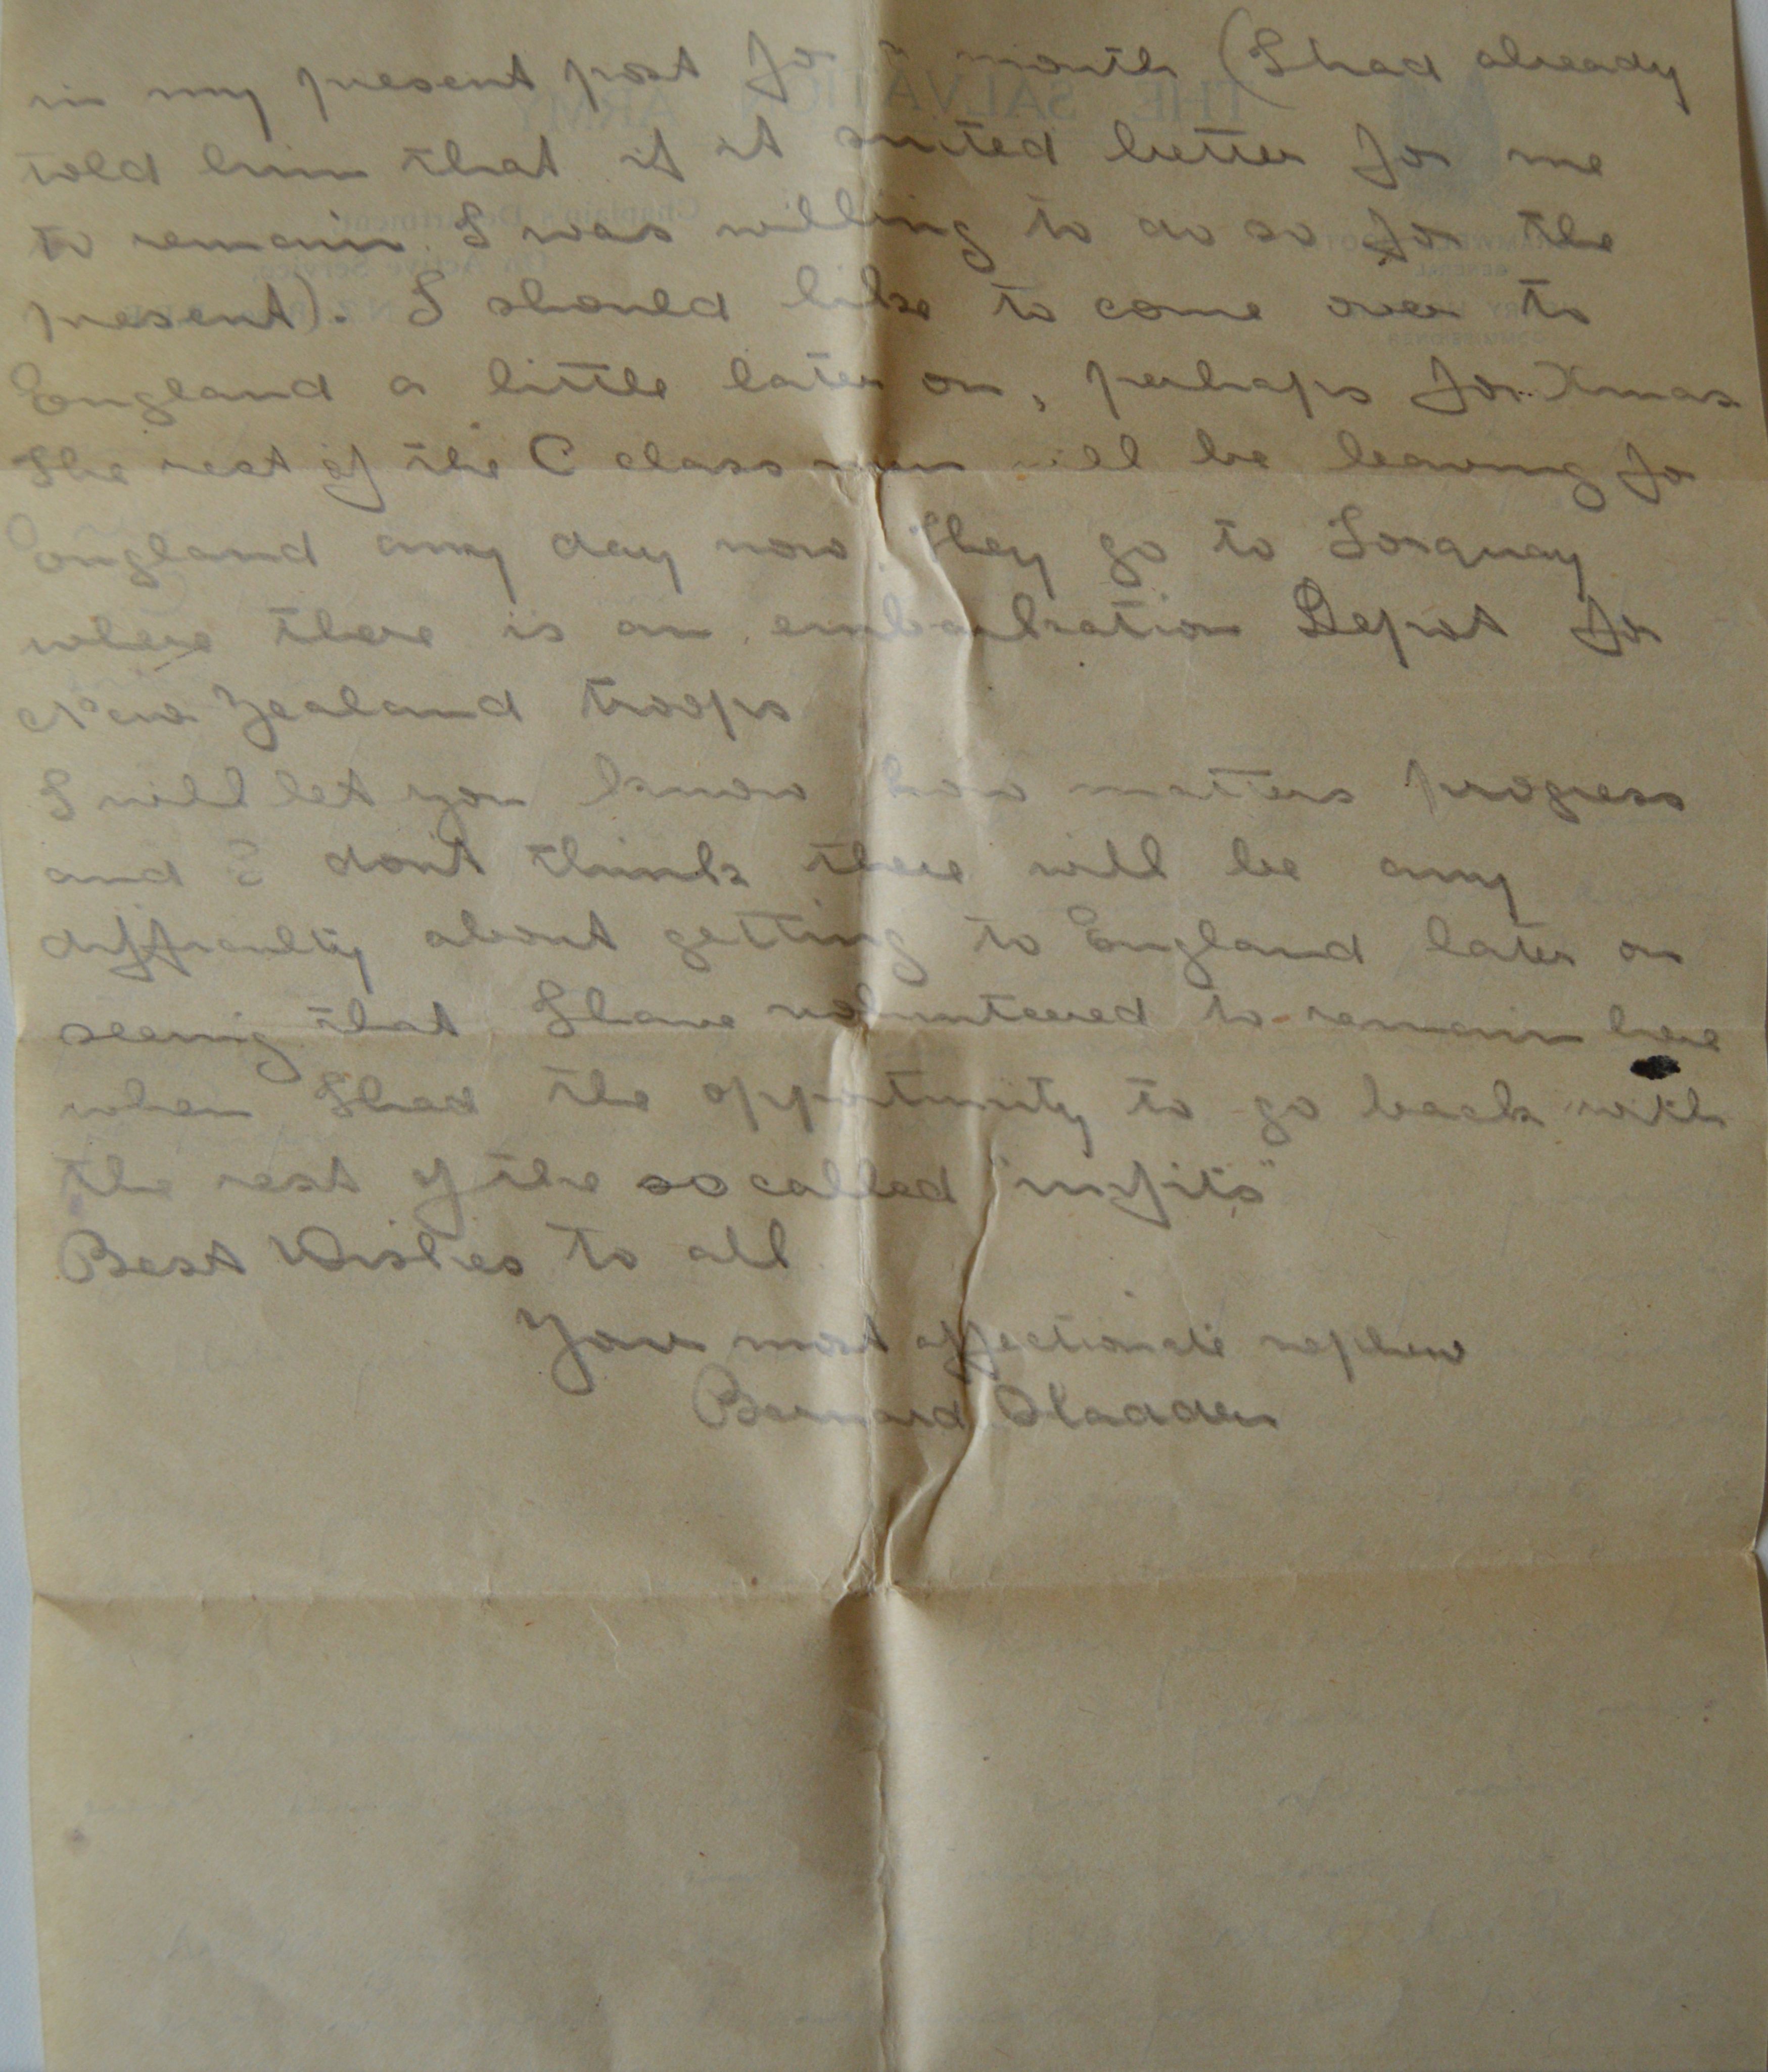 in my present post for a month (I had already
told him that if it suited better for me
to remain I was willing to do so for the
present). I should like to come over to
England a little later on, perhaps for Xmas
The rest of the C class men will be leaving for
England any day now. They go to Torquay
where there is an embarkation Depot for
New Zealand troops
I will let you know how matters progress
and I dont think there will be any
difficulty about getting to England later on
seeing that I have volunteered to remain here
when I had the opportunity to go back with
the rest of the so called "unfits"
Best Wishes to all
Your most affectionate nephew
Bernard
THE SALVATION ARMY
Chaplain's Department,
On Active Service.
GENERAL
COMMISSIONER